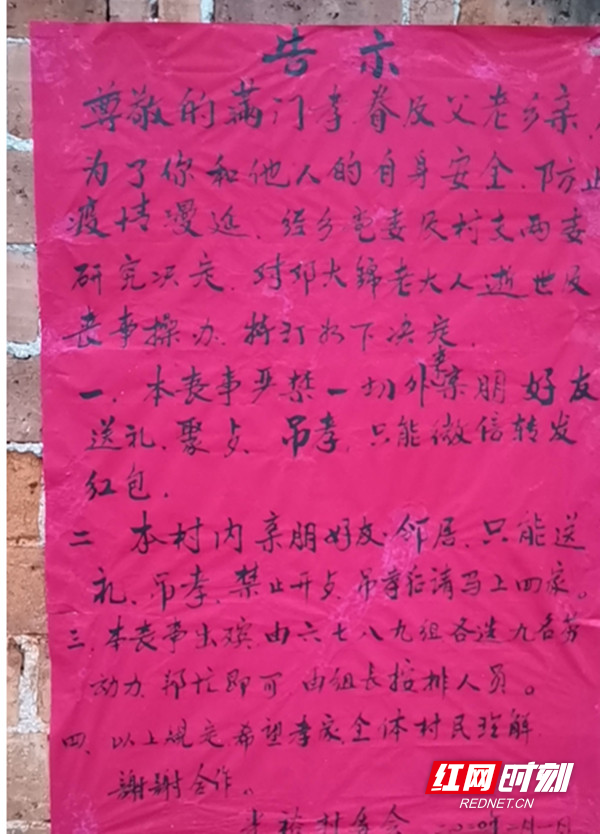 告示
尊敬的满门孝眷及父老乡亲，
为了你和他人的自身安全，防止
疫情漫延，经乡党委及村支两委
研究决定，对邓大锦老大人逝世及
丧事操办，特订如下决定，
一、本丧事严禁一切外来亲朋好友
送礼、聚点、吊孝，只能微信转发
红包．
二 本村内亲朋好友·邻居，只能送
礼、吊孝，禁止开点，吊孝后请马上回家。
三、本丧事出殡，由六七八九组各选九名劳
动力，帮忙即可，由组长按排人员。
四、以上规定希望孝家、全体村民理解，
謝謝合作。
村委会
红网时刻
REDNET.CN